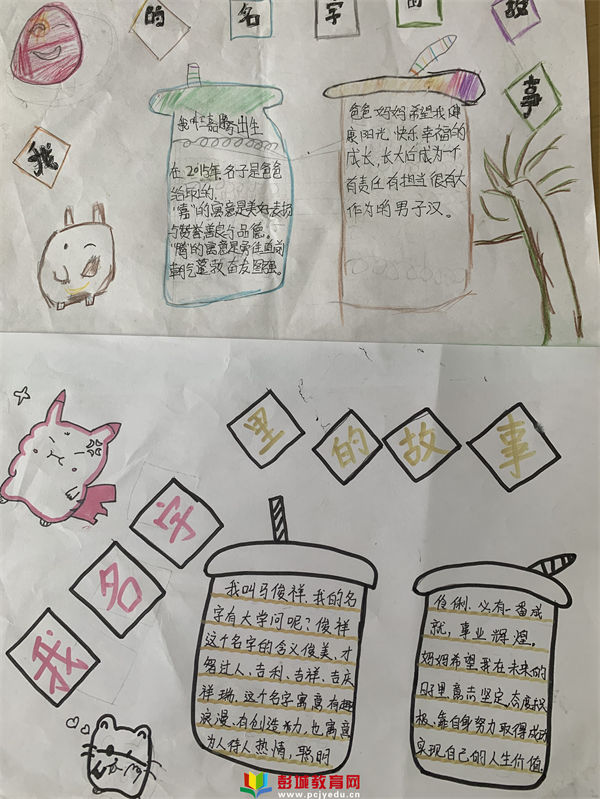 我的名字的故事
在2015年名子是爸爸
给取的.
"嘉"的寓意是美好
与赞誉善良与品德。
奋发图强。
爸爸妈妈希望我健
康阳光,快乐幸福的
成长,长大后成为一个
有责任有担当很有大
作为的男子汉。
我名字里的故事
我叫马俊祥,我的名
字有大学问呢?俊祥
这个名字的含义俊美,才
智过人、吉利、吉祥、吉庆
祥瑞。这个名字寓意有趣
浪漫.有创造力,也寓意
为人待人热情,聪明
伶俐.必有一番成
就,事业辉煌。
妈妈希望我在未来的
日子里意志坚定,态度积
极,靠自身努力取得成功
实现自己的人生价值。
彭城教育网
www.pcjyedu.cn